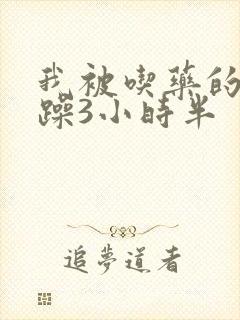 我被喫藥的
躁3小時半
追夢道者